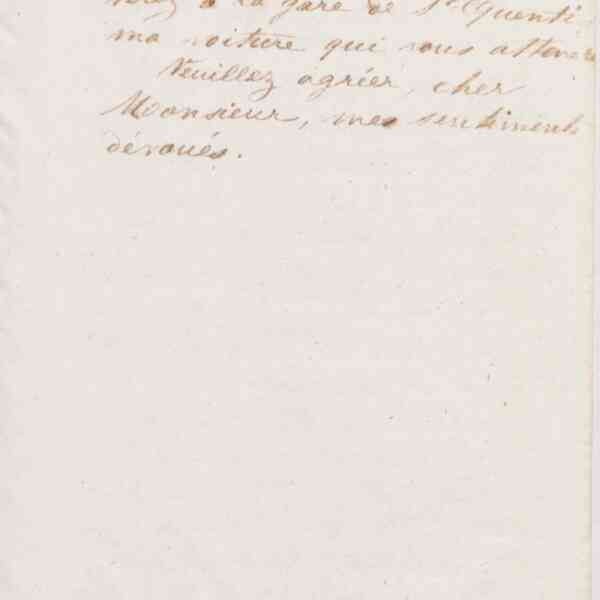 à la gare de St Quenti
ma voiture qui vous attendra
Veuillez agréer, cher
Monsieur, mes sentiments
dévoués.